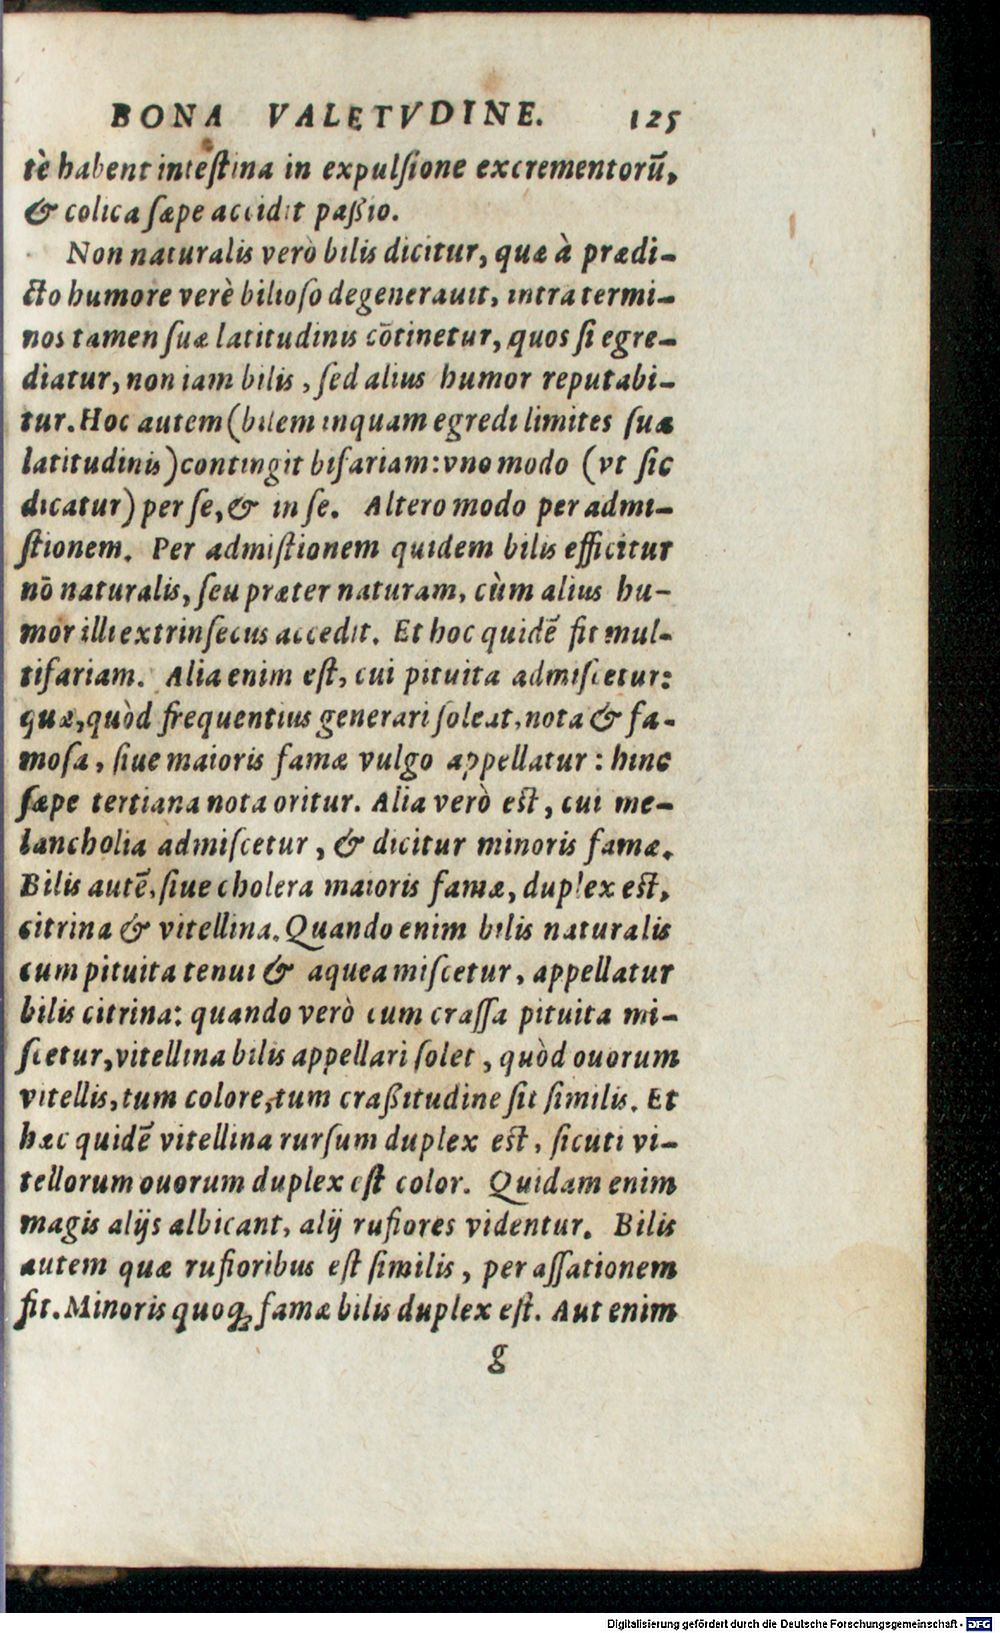 BONA VALETVDINE. 125
tè habent intestina in expulsione excrementorũ,
& colica sæpe accidit paßio.
Non naturalis verò bilis dicitur, quæ à prædi-
cto humore verè bilioso degenerauit, intra termi-
nos tamen suæ latitudinis cõtinetur, quos si egre-
diatur, non iam bilis, sed alius humor reputabi-
tur. Hoc autem (bilem inquam egredi limites suæ
latitudinis) contingit bifariam: vno modo (vt sic
dicatur) per se, & in se. Altero modo per admi-
stionem. Per admistionem quidem bilis efficitur
nõ naturalis, seu præter naturam, cùm alius hu-
mor illi extrinsecus accedit. Et hoc quidẽ fit mul-
tifariam. Alia enim est, cui pituita admiscetur:
quæ, quòd frequentius generari soleat, nota & fa-
mosa, siue maioris famæ vulgo appellatur: hinc
sæpe tertiana nota oritur. Alia verò est, cui me-
lancholia admiscetur, & dicitur minoris famæ.
Bilis autẽ, siue cholera maioris famæ, duplex est,
citrina & vitellina. Quando enim bilis naturalis
cum pituita tenui & aquea miscetur, appellatur
bilis citrina: quando verò cum crassa pituita mi-
scetur, vitellina bilis appellari solet, quòd ouorum
vitellis, tum colore, tum craßitudine sit similis. Et
hæc quidẽ vitellina rursum duplex est, sicuti vi-
tellorum ouorum duplex est color. Quidam enim
magis alijs albicant, alij rufiores videntur. Bilis
autem quæ rufioribus est similis, per assationem
fit. Minoris quoq; famæ bilis duplex est. Aut enim
g
Digitalisierung gefördert durch die Deutsche Forschungsgemeinschaft - DFG